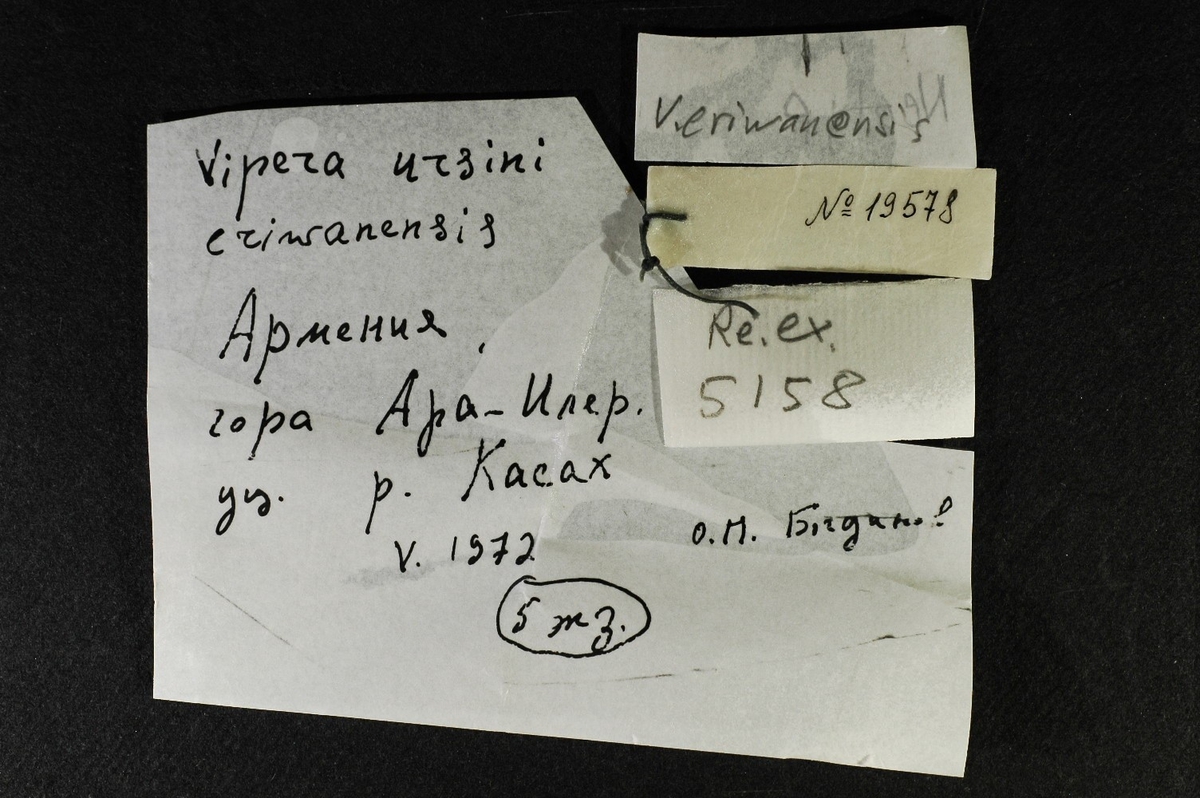 V. eriwanensis
№ 19578
Re. ex.
5158
Vipera ursini
eriwanensis
Армения,
гора Ара-Илер.
ущ. р. Касах
V. 1972
О.П. Богданов
5 экз.